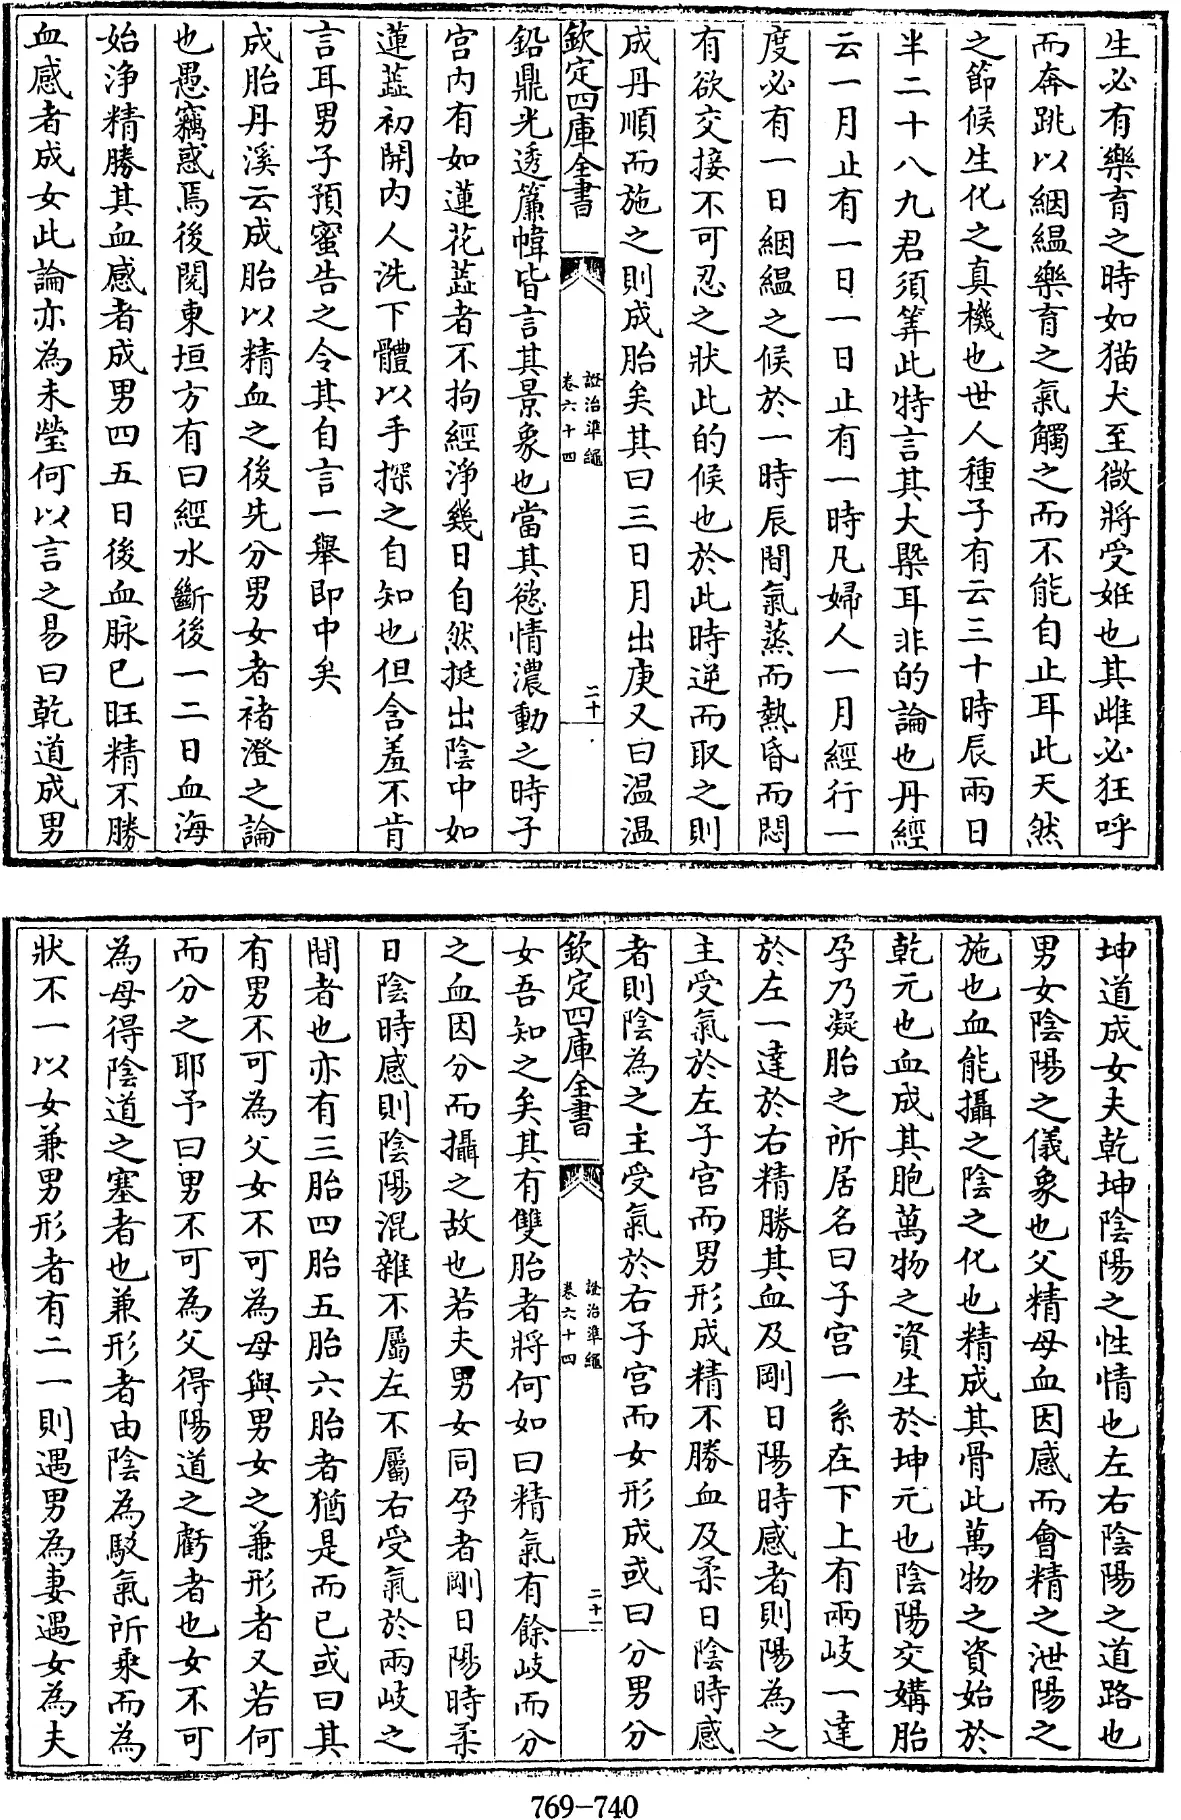 生必有樂育之時如猫犬至微將受姙也其雌必狂呼
而奔跳以絪緼樂育之氣觸之而不能自止耳此天然
之節候生化之真機也世人種子有云三十時辰兩日
半二十八九君須筭此特言其大槩耳非的論也丹經
云一月止有一日一日止有一時凡婦人一月經行一
度必有一日絪緼之候於一時辰間氣蒸而熱昏而悶
有欲交接不可忍之狀此的候也於此時逆而取之則
成丹順而施之則成胎矣其曰三日月出庚又曰温温
欽定四庫全書
證治準繩
卷六十四
二十
鉛鼎光透簾幃皆言其景象也當其慾情濃動之時子
宫内有如蓮花蕋者不拘經淨幾日自然挺出陰中如
蓮蕋初開内人洗下體以手探之自知也但含羞不肯
言耳男子預蜜告之令其自言一舉即中矣
成胎丹溪云成胎以精血之後先分男女者褚澄之論
也愚竊惑焉後閲東垣方有曰經水斷後一二日血海
始淨精勝其血感者成男四五日後血脉已旺精不勝
血感者成女此論亦為未瑩何以言之易曰乾道成男
坤道成女夫乾坤陰陽之性情也左右陰陽之道路也
男女陰陽之儀象也父精母血因感而會精之泄陽之
施也血能攝之陰之化也精成其骨此萬物之資始於
乾元也血成其胞萬物之資生於坤元也陰陽交媾胎
孕乃凝胎之所居名曰子宫一系在下上有兩岐一達
於左一達於右精勝其血及剛日陽時感者則陽為之
主受氣於左子宫而男形成精不勝血及柔日陰時感
者則陰為之主受氣於右子宫而女形成或曰分男分
欽定四庫全書
證治準繩
卷六十四
二十一
女吾知之矣其有雙胎者將何如曰精氣有餘岐而分
之血因分而攝之故也若夫男女同孕者剛日陽時柔
日陰時感則陰陽混雜不屬左不屬右受氣於兩岐之
間者也亦有三胎四胎五胎六胎者猶是而已或曰其
有男不可為父女不可為母與男女之兼形者又若何
而分之耶予曰男不可為父得陽道之虧者也女不可
為母得陰道之塞者也兼形者由陰為駁氣所乘而為
狀不一以女兼男形者有二一則遇男為妻遇女為夫
769-740